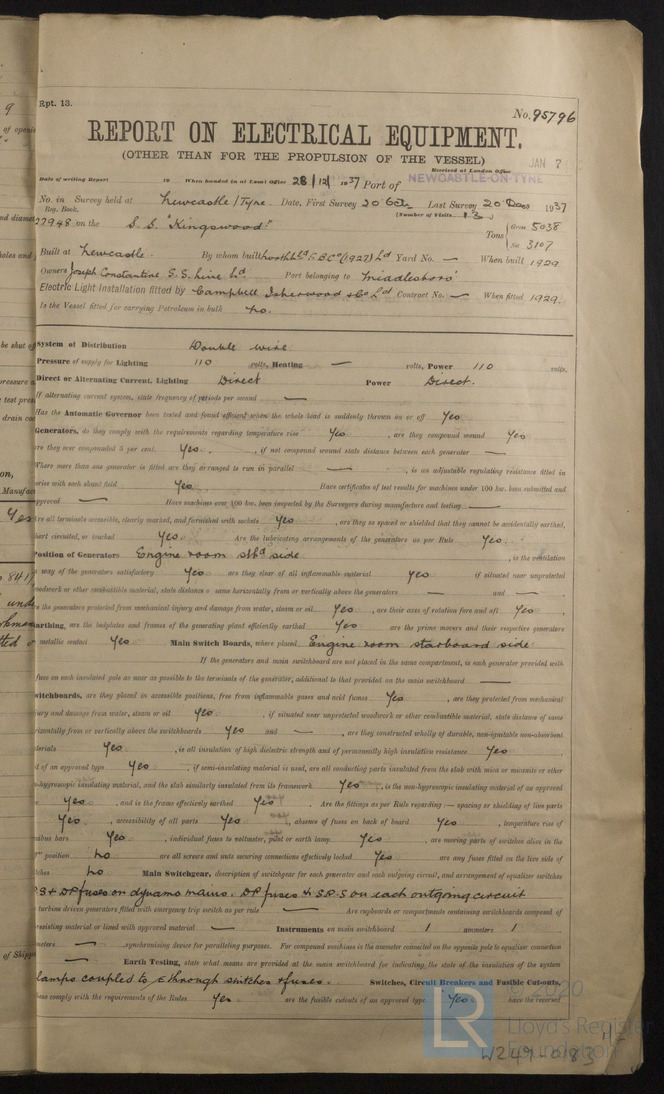 Rpt. 13.
No. 95796
REPORT ON ELECTRICAL EQUIPMENT.
(OTHER THAN FOR THE PROPULSION OF THE VESSEL)
JAN 7
Received at London Office
Date of writing Report 19 When handed in at Local Office 28/12/1937 Port of NEWCASTLE-ON-TYNE
No. in Survey held at Newcastle/Tyne Date, First Survey 20 Oct Last Survey 20 Dec 1937
Reg. Book. (Number of Visits 13)
27948 on the S.S. "Kingswood" Tons Gross 5038
Net 3107
Built at Newcastle By whom built (1927) Ld Yard No. — When built 1929
Owners Joseph Constantine S.S. Line Ld Port belonging to Middlesbro'
Electric Light Installation fitted by Campbell Isherwood & Co Ld Contract No. — When fitted 1929.
Is the Vessel fitted for carrying Petroleum in bulk No.
System of Distribution Double wire
Pressure of supply for Lighting 110 volts, Heating — volts, Power 110 volts.
Direct or Alternating Current, Lighting Direct Power Direct.
If alternating current system, state frequency of periods per second —
Has the Automatic Governor been tested and found efficient when the whole load is suddenly thrown on or off Yes
Generators, do they comply with the requirements regarding temperature rise Yes, are they compound wound Yes
are they over compounded 5 per cent. Yes., if not compound wound state distance between each generator —
Where more than one generator is fitted are they arranged to run in parallel —, is an adjustable regulating resistance fitted in
series with each shunt field Yes. Have certificates of test results for machines under 100 kw. been submitted and
approved — Have machines over 100 kw. been inspected by the Surveyors during manufacture and testing —
Are all terminals accessible, clearly marked, and furnished with sockets Yes, are they so spaced or shielded that they cannot be accidentally earthed,
short circuited, or touched Yes. Are the lubricating arrangements of the generators as per Rule Yes.
Position of Generators Engine room stbd side, is the ventilation
in way of the generators satisfactory Yes are they clear of all inflammable material Yes if situated near unprotected
woodwork or other combustible material, state distance of same horizontally from or vertically above the generators — and —
are the generators protected from mechanical injury and damage from water, steam or oil Yes, are their axes of rotation fore and aft Yes,
Earthing, are the bedplates and frames of the generating plant efficiently earthed Yes are the prime movers and their respective generators
in metallic contact Yes Main Switch Boards, where placed Engine room starboard side
If the generators and main switchboard are not placed in the same compartment, is each generator provided with
fuse on each insulated pole as near as possible to the terminals of the generator, additional to that provided on the main switchboard —
Switchboards, are they placed in accessible positions, free from inflammable gases and acid fumes Yes, are they protected from mechanical
injury and damage from water, steam or oil Yes, if situated near unprotected woodwork or other combustible material, state distance of same
horizontally from or vertically above the switchboards Yes and —, are they constructed wholly of durable, non-ignitable non-absorbent
materials Yes, is all insulation of high dielectric strength and of permanently high insulation resistance Yes
d of an approved type Yes, if semi-insulating material is used, are all conducting parts insulated from the slab with mica or micanite or other
non-hygroscopic insulating material, and the slab similarly insulated from its framework Yes, is the non-hygroscopic insulating material of an approved
Yes, and is the frame effectively earthed Yes. Are the fittings as per Rule regarding:— spacing or shielding of live parts
Yes, accessibility of all parts Yes, absence of fuses on back of board Yes, temperature rise of
omnibus bars Yes, individual fuses to voltmeter, pilot or earth lamp Yes, are moving parts of switches alive in the
position No are all screws and nuts securing connections effectively locked Yes are any fuses fitted on the live side of
switches No Main Switchgear, description of switchgear for each generator and each outgoing circuit, and arrangement of equalizer switches
S + DP fuses on dynamo mains. DP fuses & S.P.S on each outgoing circuit
turbine driven generators fitted with emergency trip switch as per rule — Are cupboards or compartments containing switchboards composed of
resisting material or lined with approved material — Instruments on main switchboard 1 ammeters 1
meters — synchronising device for paralleling purposes. For compound machines is the ammeter connected on the opposite pole to equaliser connection
— Earth Testing, state what means are provided at the main switchboard for indicating the state of the insulation of the system
lamps coupled to E through switches & fuses. Switches, Circuit Breakers and Fusible Cut-outs,
these comply with the requirements of the Rules Yes are the fusible cutouts of an approved type Yes have the reversed
© 2020
LR
Lloyd's Register
Foundation
W249-0183